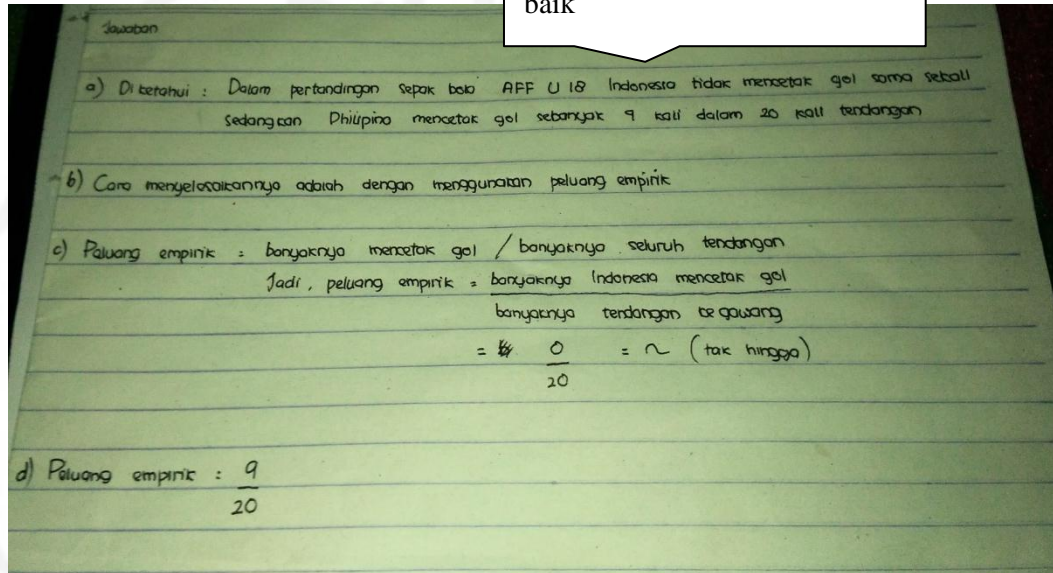 baik
Jawaban
a) Diketahui : Dalam pertandingan sepak bola AFF U 18 Indonesia tidak mencetak gol sama sekali
sedangkan Philipina mencetak gol sebanyak 9 kali dalam 20 kali tendangan
b) Cara menyelesaikannya adalah dengan menggunakan peluang empirik
c) Peluang empirik = banyaknya mencetak gol / banyaknya seluruh tendangan
Jadi, peluang empirik = banyaknya Indonesia mencetak gol
banyaknya tendangan ke gawang
= 0 = ~ (tak hingga)
20
d) Peluang empirik : 9
20